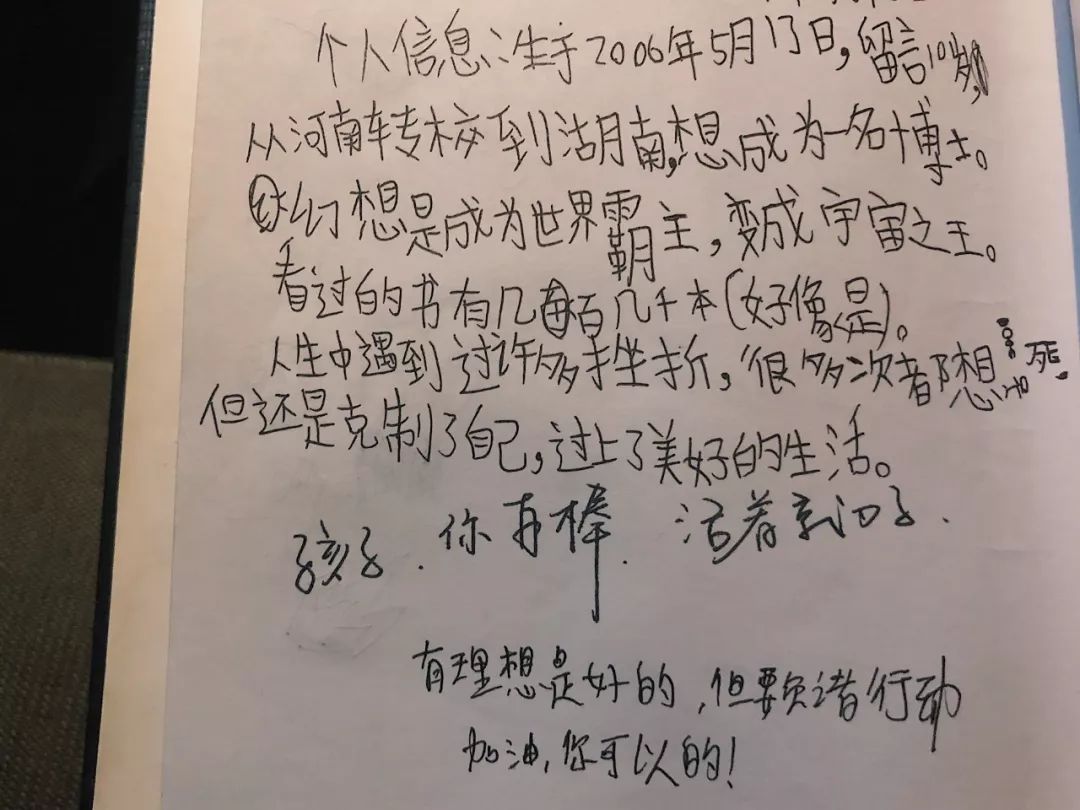 个人信息:生于2006年5月17日,留言10岁,
从河南转校到湖南,想成为一名博士。
幻想是成为世界霸主,变成宇宙之王。
看过的书有几百几千本(好像是)。
人生中遇到过许多挫折,很多次都想死.
但还是克制了自己,过上了美好的生活。
孩子.你真棒.活着就好.
有理想是好的,但要负诸行动
加油,你可以的!